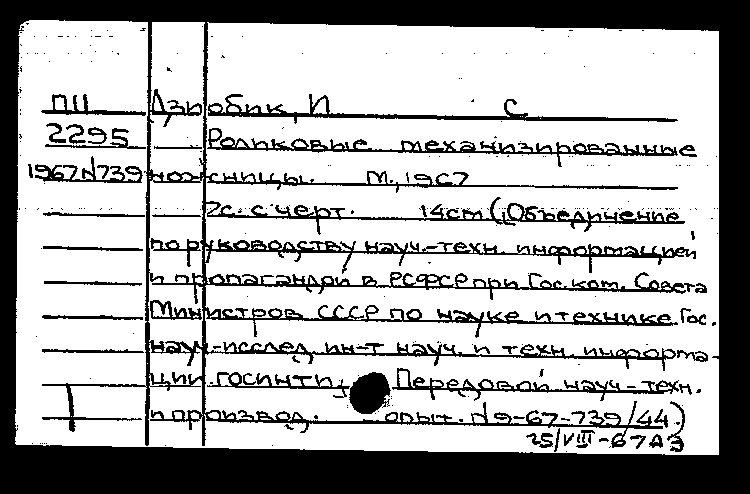 П11 Дзюбик, И С
2295 Роликовые механизированные
1967 N739 ножницы. М., 1967
7с. с черт. 14см (Объединение
по руководству науч.-техн. информацией
и пропагандой в РСФСР при Гос. ком. Совета
Министров СССР по науке и технике. Гос.
науч-исслед. ин-т науч. и техн. информа-
ции. ГОСИНТИ. Передовой науч-техн.
и производ. опыт. N 9-67-739/44)
25/VIII-67 АЭ